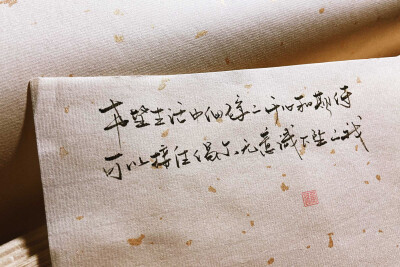 希望生活中细碎的开心和期待
可以接住偶尔无意识下坠的我